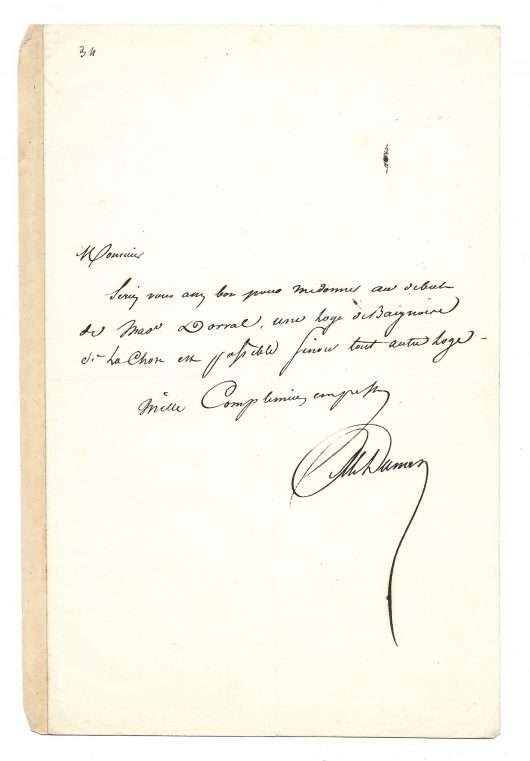 34
Monsieur
Seriez vous assez bon pour me donner au debut
de Made Dorval, une loge de Baignoire
si la chose est possible sinon tout autre loge -
Mille Complimens empressés
Al Dumas